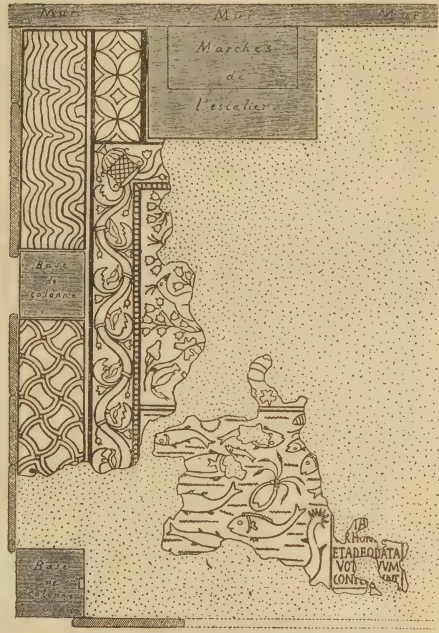 Mur Mur Mur
Marches
de
l'escalier
Base
de
colonne
Base
de
colonne
ETADEODATA
VOT VUM